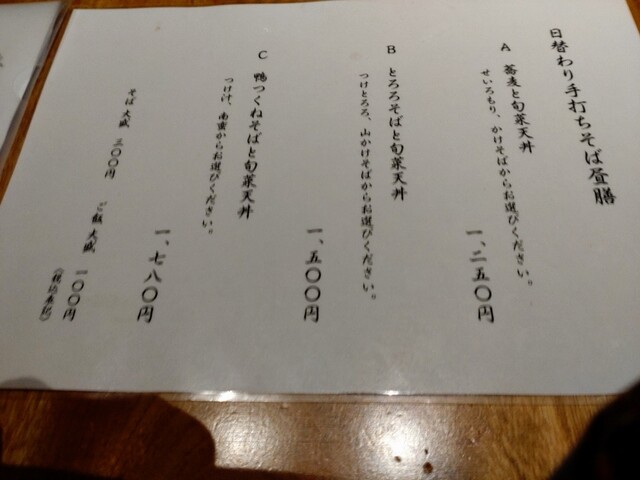 日替わり手打ちそば昼膳
A 蕎麦と旬菜天丼
せいろもり、かけそばからお選びください。
一、二五〇円
B とろろそばと旬菜天丼
つけとろろ、山かけそばからお選びください。
一、五〇〇円
C 鴨つくねそばと旬菜天丼
つけ汁、南蛮からお選びください。
一、七八〇円
そば大盛 三〇〇円
ご飯大盛 一〇〇円
(税込表記)